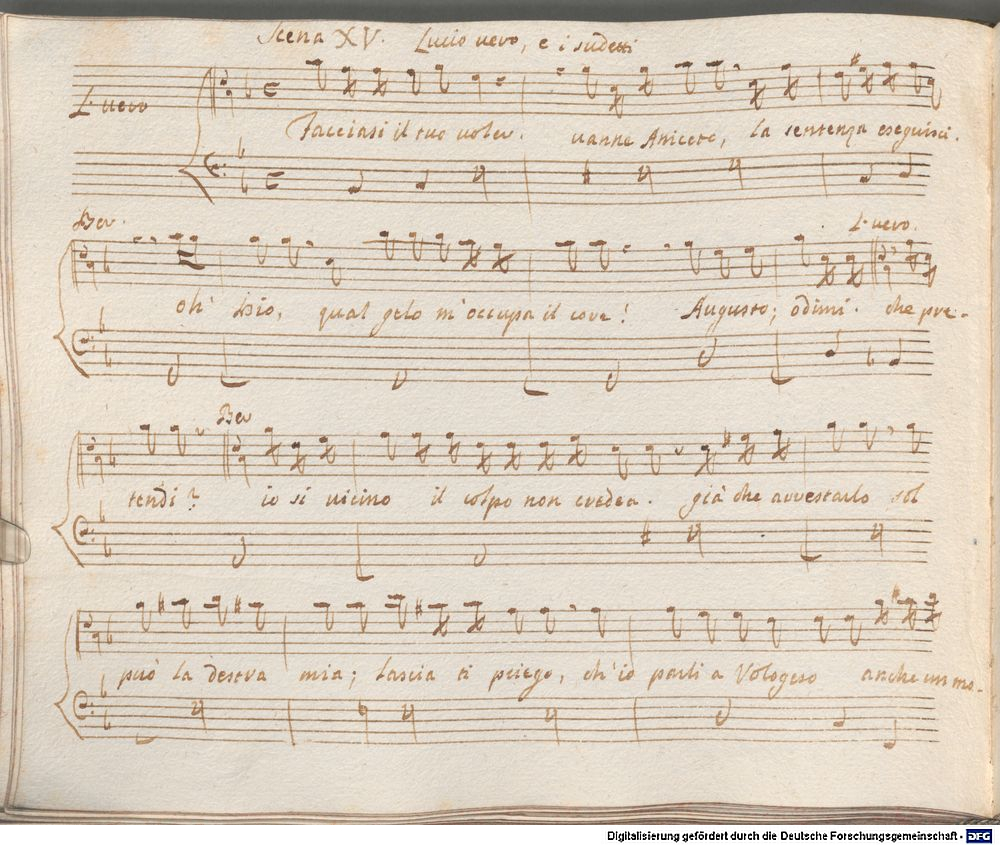 Scena XV. Lucio vero, e i sudetti
L. vero
Facciasi il tuo voler. vanne Aniceto, la sentenza eseguisci.
Ber.
L. vero.
oh' Dio, qual gelo m'occupa il core! Augusto; odimi. che pre-
Ber
tendi? io sì vicino il colpo non credea. già che arrestarlo sol
può la destra mia; lascia ti priego, ch'io parli a Vologeso anche un mo-
Digitalisierung gefördert durch die Deutsche Forschungsgemeinschaft - DFG